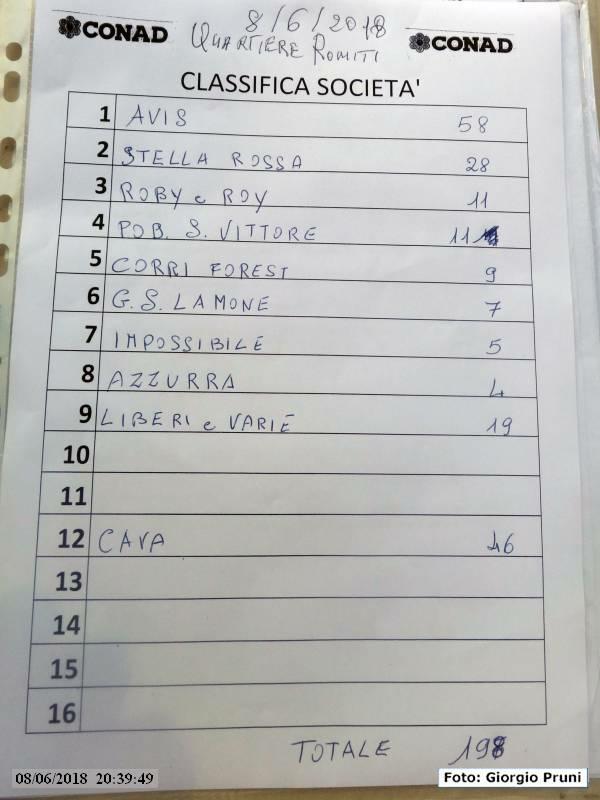 CONAD
8/6/2018
CONAD
QUARTIERE ROMITI
CLASSIFICA SOCIETA'
1 AVIS 58
2 STELLA ROSSA 28
3 ROBY e ROY 11
4 POB. S. VITTORE 11
5 CORRI FOREST 9
6 G.S. LAMONE 7
7 IMPOSSIBILE 5
8 AZZURRA 4
9 LIBERI e VARIE 19
10
11
12 CAVA 46
13
14
15
16
TOTALE 198
08/06/2018 20:39:49
Foto: Giorgio Pruni